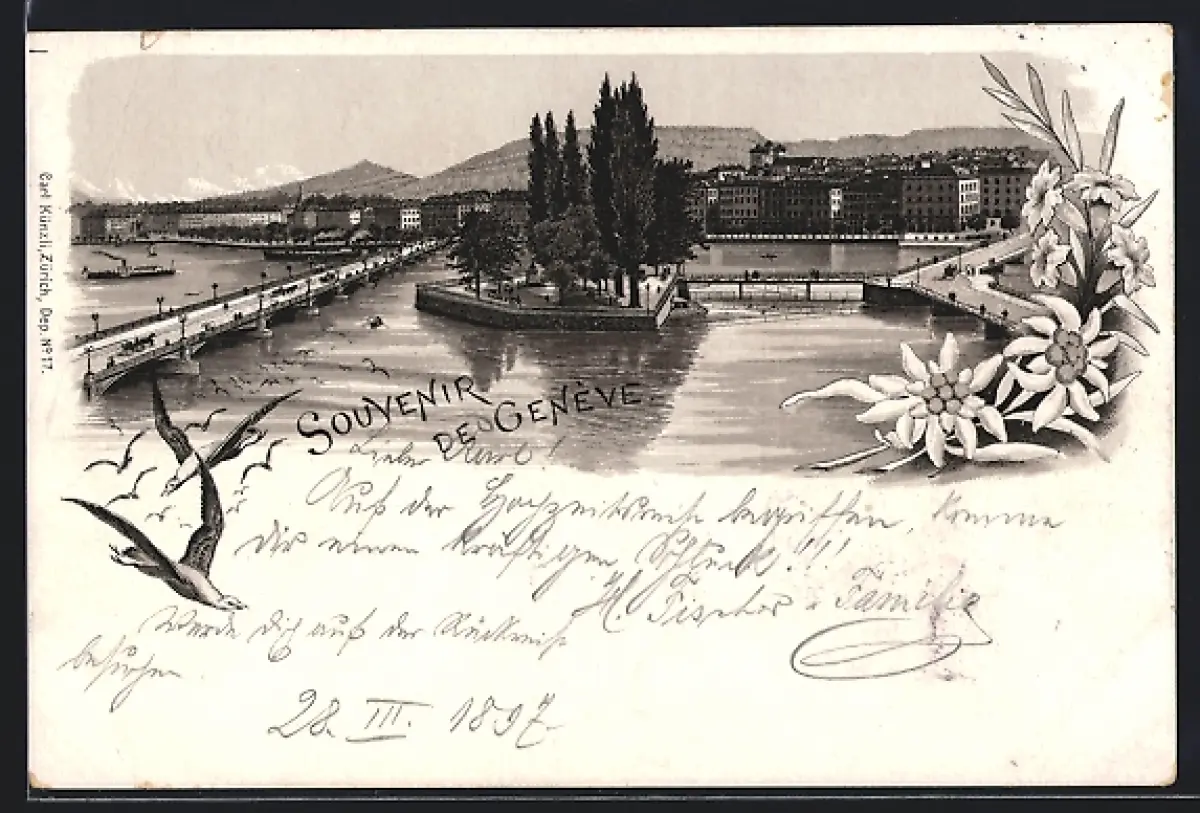 Carl Künzli, Zürich, Dep. No 17.
SOUVENIR
DE GENÈVE
Lieber Karl!
Auf der Hochzeitsreise begriffen, komme
dir einen kräftigen Schluck!!!
H. Fischer u Familie
Werde dich auf der Rückreise
besuchen
28. III. 1897.